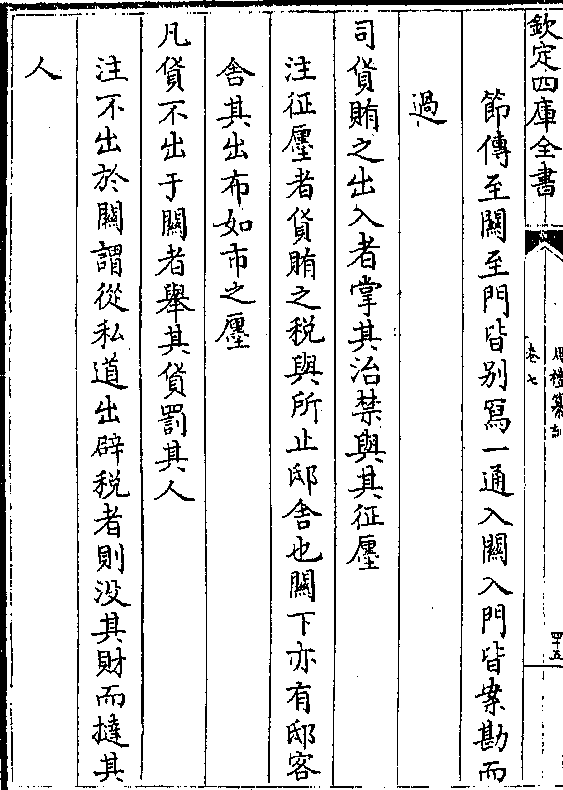 欽定四庫全書
周禮纂訓
卷七
四十五
節傳至關至門皆别寫一通入關入門皆案勘而
過
司貨賄之出入者掌其治禁與其征廛
注征廛者貨賄之税與所止邸舍也關下亦有邸客
舍其出布如市之廛
凡貨不出于關者舉其貨罰其人
注不出於關謂從私道出辟税者則没其財而撻其
人